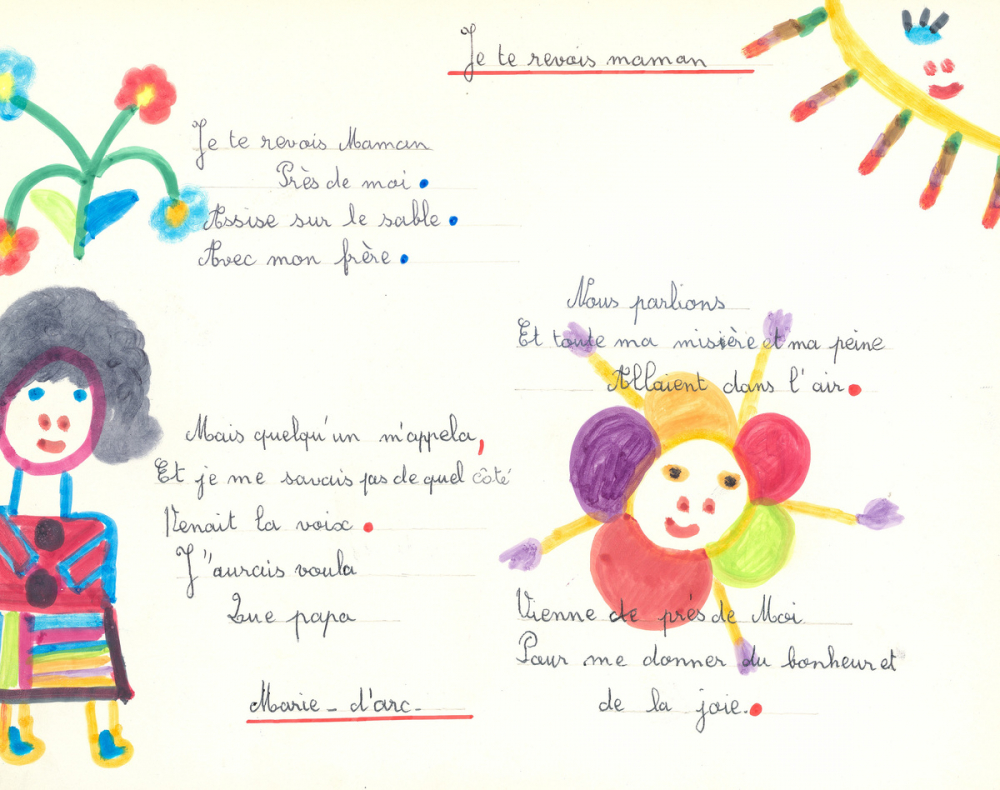 Je te revois maman
Je te revois Maman
Près de moi.
Assise sur le sable.
Avec mon frère.
Nous parlions
Et toute ma misière et ma peine
Allaient dans l'air.
Mais quelqu'un m'appela,
Et je me savais pas de quel côté
Venait la voix.
J"aurais voula
Que papa
Vienne de près de Moi
Pour me donner du bonheur et
de la joie..
Marie - d'arc -